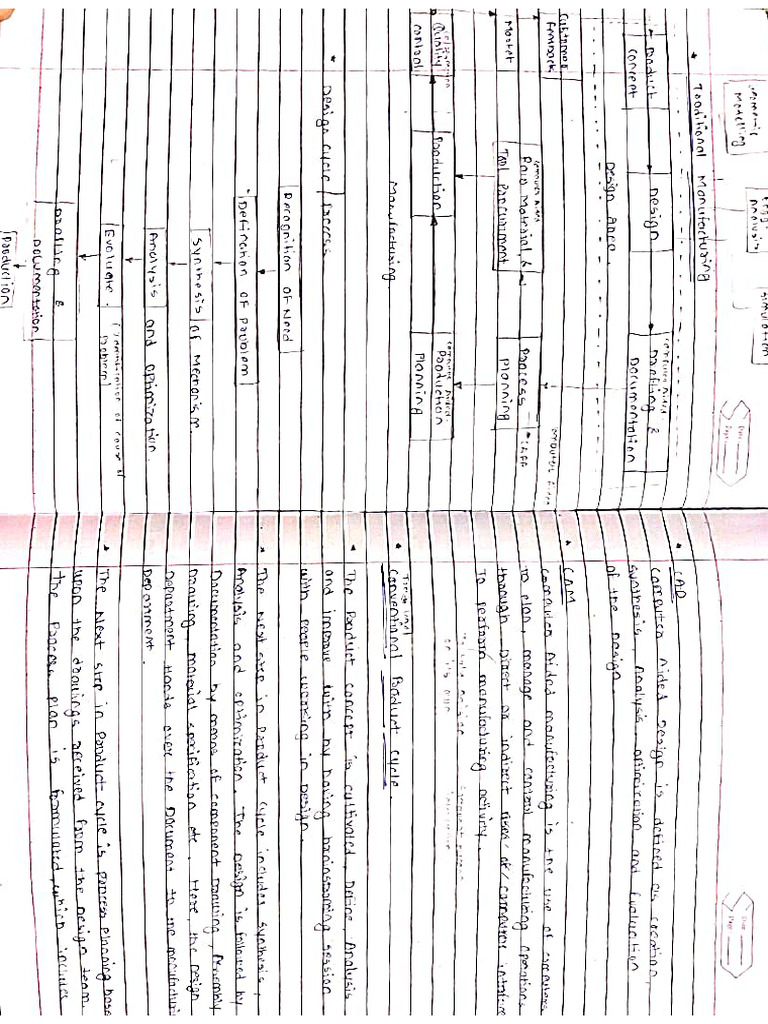 Geometric
Modelling
Analysis
Simulation
• Traditional Manufacturing
Product
concept
Design
computer Aided
Drafting &
Documentation
Design Area.
Customer
Feedback
Market
computer Aided
Raw Material, &
Tool Procurement
Process
planning
- CAPP
computer Aided
Quality
control
Production
computer Aided
Production
Planning
Manufacturing
• Design Cycle / Process
Recognition of Need
Defination of Problem
Synthesis of Mechanism.
Analysis and optimization.
Evaluate.
Problem
Drafting &
Documentation
Production
Date
Page
• CAD
Computer Aided Design is defined as creation,
synthesis, Analysis, optimization and Evaluation
of the Design.
• CAM
Computer Aided manufacturing is the use of computers
to plan, manage and control manufacturing operations
through Direct or indirect uses/of/computer interface
To perform manufacturing activity.
• Conventional Product cycle.
• The Product concept is cultivated, Define, Analysis
and improve with by having brainstorming session
with people working in Design.
• The Next step in Product cycle includes synthesis,
Analysis and optimization. The Design is followed by
Documentation by means of component Drawing, Assembly
Drawing, material specification etc. Here, the Design
Department Hands over the Document to the manufacturing
Department.
• The Next step in Product cycle is process planning base
upon the drawings received from the Design team.
The Process plan is formulated, which includes
Date
Page